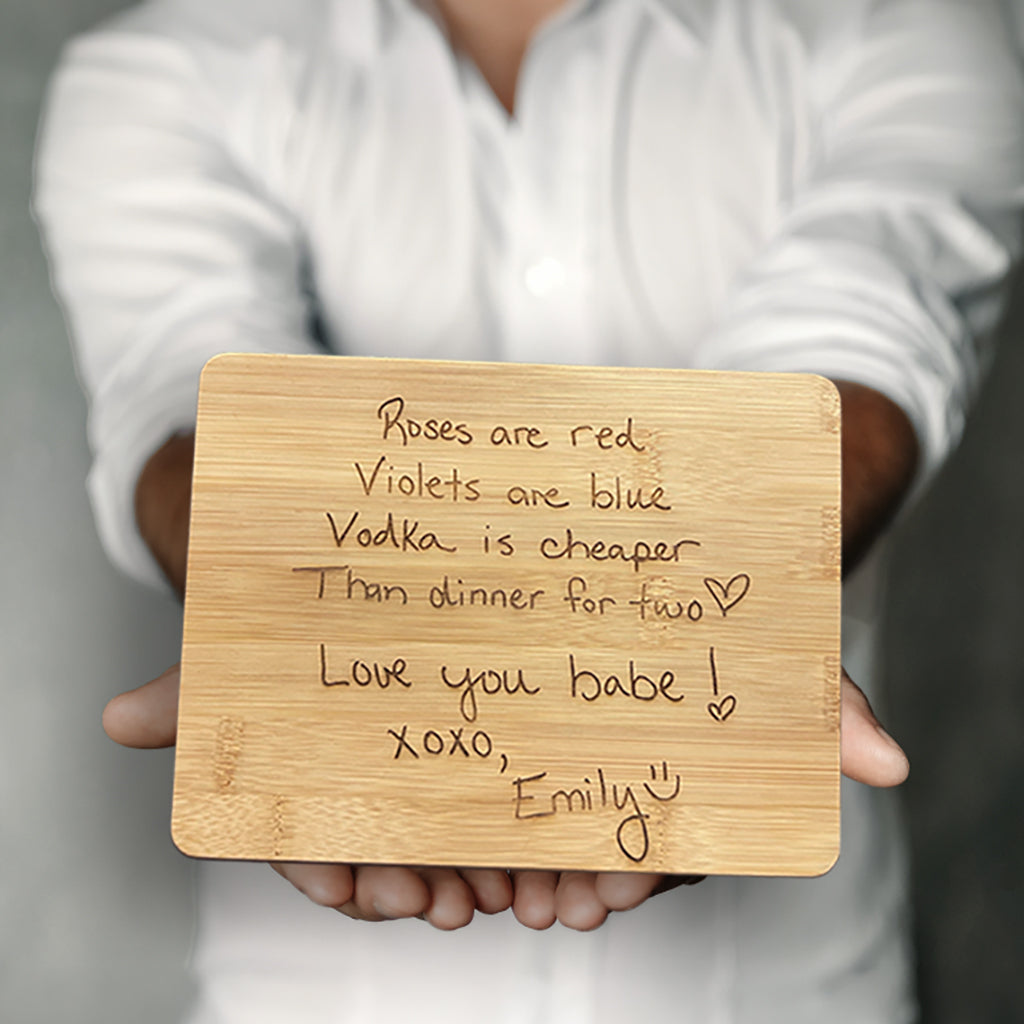 Roses are red
Violets are blue
Vodka is cheaper
Than dinner for two♡
Love you babe!
xoxo,
Emily